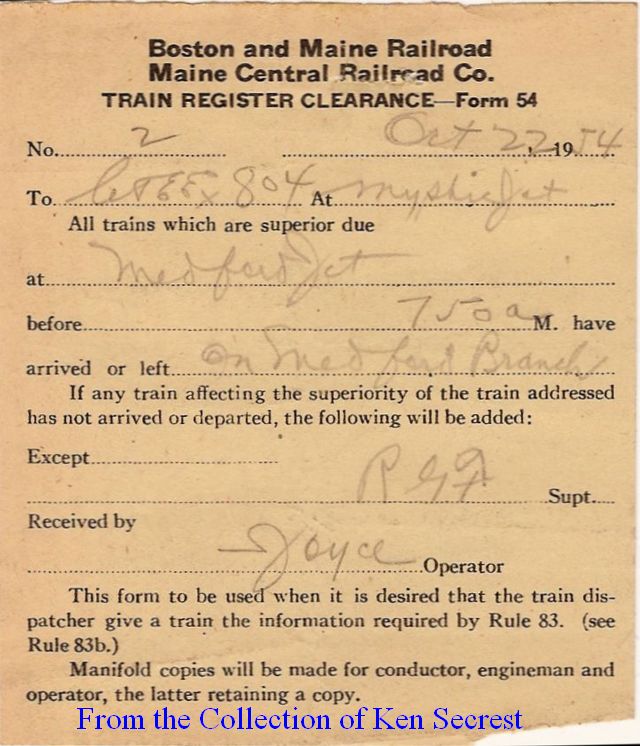 Boston and Maine Railroad
Maine Central Railroad Co.
TRAIN REGISTER CLEARANCE—Form 54
No. 2 Oct 22, 1954
To Ex 804 At Mystic Jct
All trains which are superior due
at Medford Jct
before 750 a M. have
arrived or left on Medford Branch
If any train affecting the superiority of the train addressed
has not arrived or departed, the following will be added:
Except
R G F Supt.
Received by
Joyce Operator
This form to be used when it is desired that the train dis-
patcher give a train the information required by Rule 83. (see
Rule 83b.)
Manifold copies will be made for conductor, engineman and
operator, the latter retaining a copy.
From the Collection of Ken Secrest